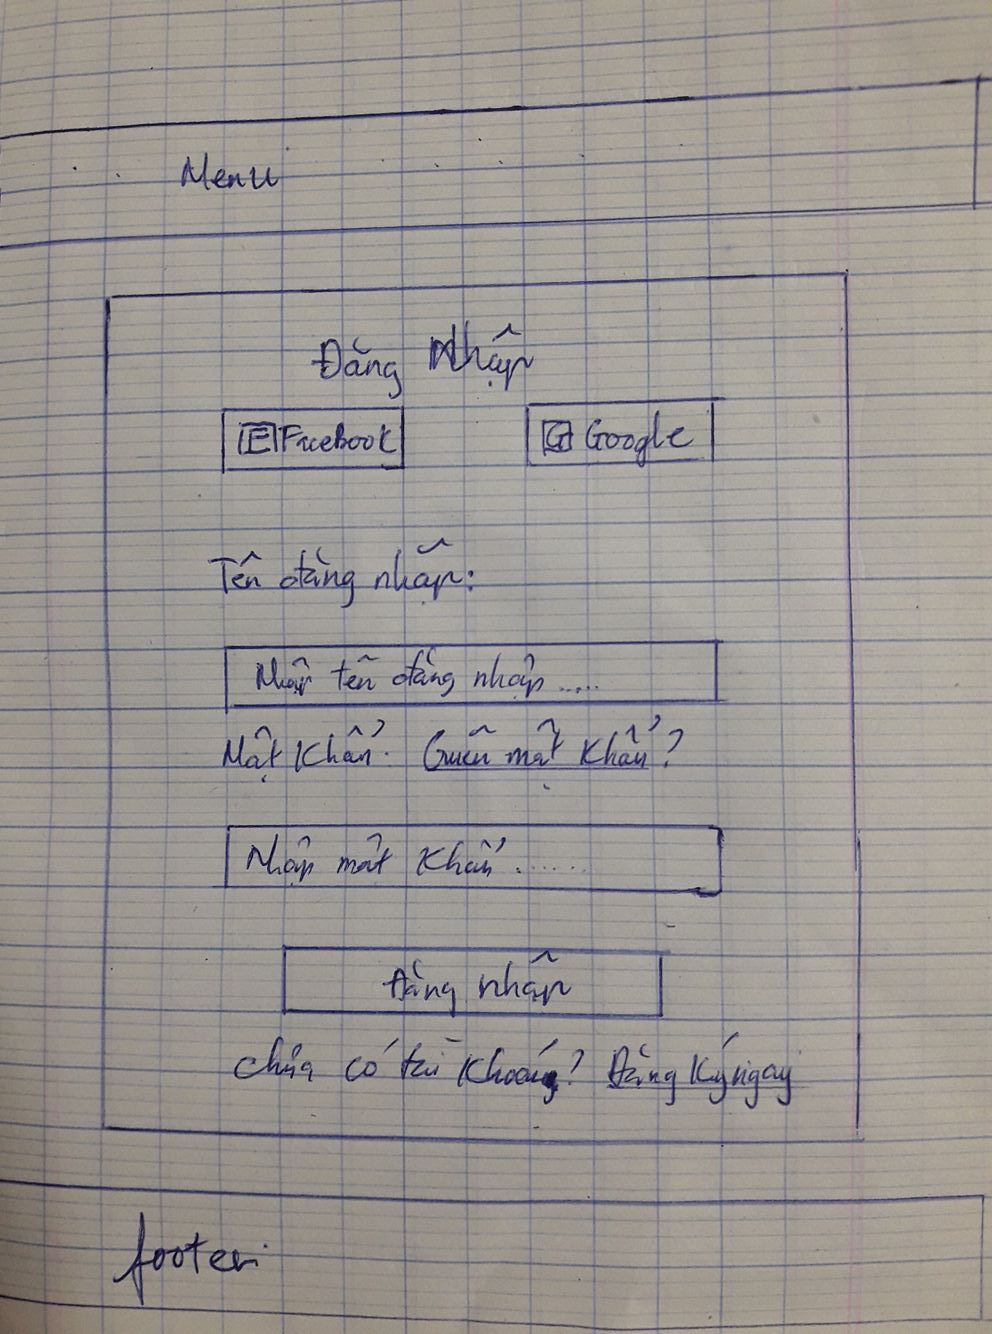 Menu
Đăng Nhập
F Facebook G Google
Tên đăng nhập:
Nhập tên đăng nhập .....
Mật Khẩu. Quên mật Khẩu?
Nhập mật Khẩu .......
Đăng nhập
chưa có tài Khoản? Đăng Ký ngay
footer